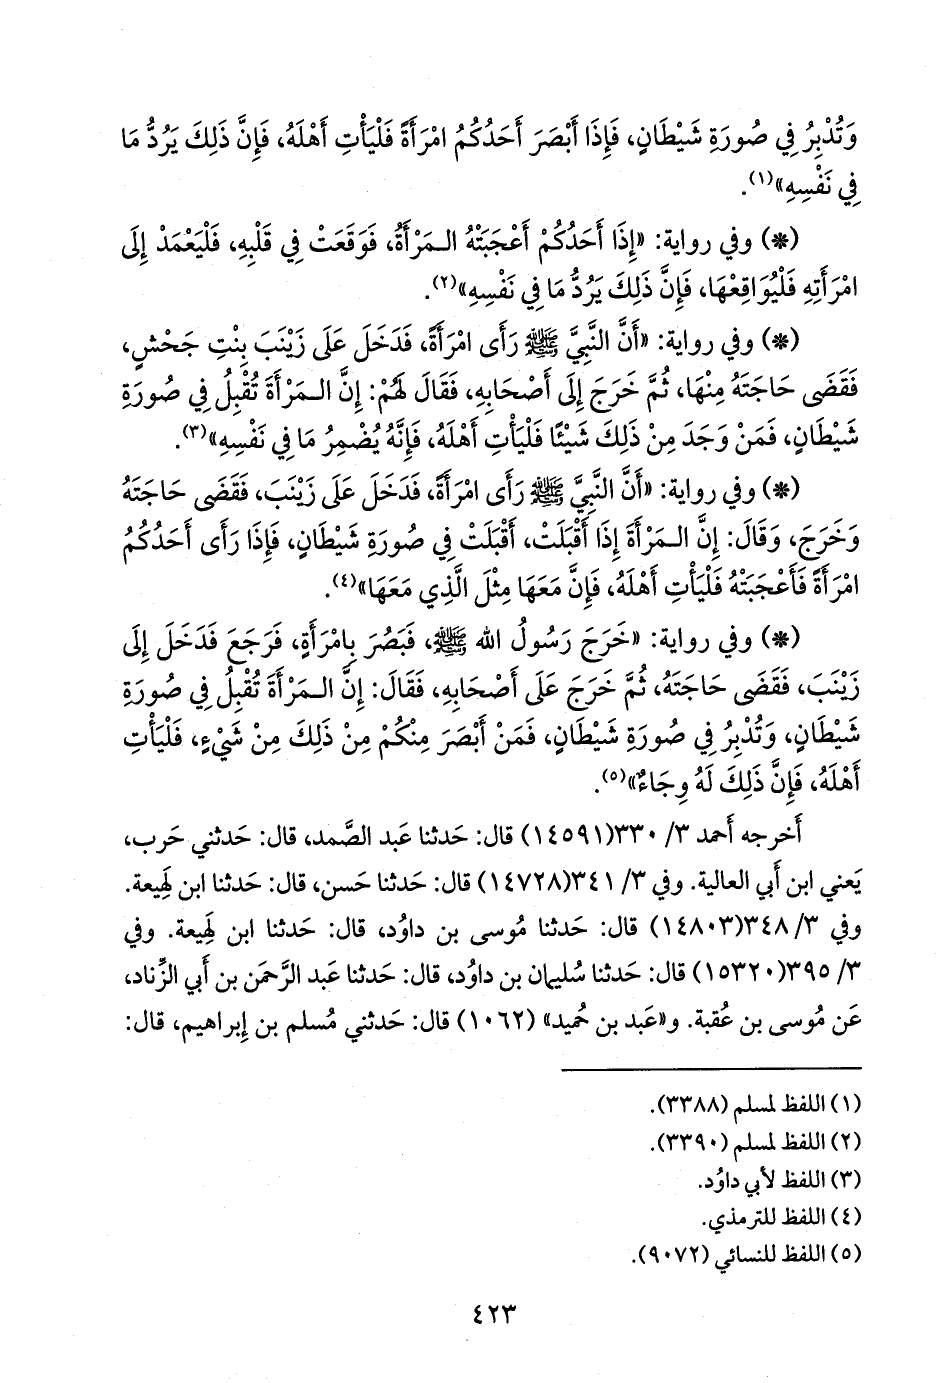 وَتُدْبِرُ فِي صُورَةِ شَيْطَانٍ، فَإِذَا أَبْصَرَ أَحَدُكُمُ امْرَأَةً فَلْيَأْتِ أَهْلَهُ، فَإِنَّ ذَلِكَ يَرُدُّ مَا
فِي نَفْسِهِ»(١).
(*) وفي رواية: «إِذَا أَحَدُكُمْ أَعْجَبَتْهُ الـمَرْأَةُ، فَوَقَعَتْ فِي قَلْبِهِ، فَلْيَعْمَدْ إِلَى
امْرَأَتِهِ فَلْيُوَاقِعْهَا، فَإِنَّ ذَلِكَ يَرُدُّ مَا فِي نَفْسِهِ»(٢).
(*) وفي رواية: «أَنَّ النَّبِيَّ ﷺ رَأَى امْرَأَةً، فَدَخَلَ عَلَى زَيْنَبَ بِنْتِ جَحْشٍ،
فَقَضَى حَاجَتَهُ مِنْهَا، ثُمَّ خَرَجَ إِلَى أَصْحَابِهِ، فَقَالَ لَهُمْ: إِنَّ الـمَرْأَةَ تُقْبِلُ فِي صُورَةِ
شَيْطَانٍ، فَمَنْ وَجَدَ مِنْ ذَلِكَ شَيْئًا فَلْيَأْتِ أَهْلَهُ، فَإِنَّهُ يُضْمِرُ مَا فِي نَفْسِهِ»(٣).
(*) وفي رواية: «أَنَّ النَّبِيَّ ﷺ رَأَى امْرَأَةً، فَدَخَلَ عَلَى زَيْنَبَ، فَقَضَى حَاجَتَهُ
وَخَرَجَ، وَقَالَ: إِنَّ الـمَرْأَةَ إِذَا أَقْبَلَتْ، أَقْبَلَتْ فِي صُورَةِ شَيْطَانٍ، فَإِذَا رَأَى أَحَدُكُمُ
امْرَأَةً فَأَعْجَبَتْهُ فَلْيَأْتِ أَهْلَهُ، فَإِنَّ مَعَهَا مِثْلَ الَّذِي مَعَهَا»(٤).
(*) وفي رواية: «خَرَجَ رَسُولُ الله ﷺ، فَبَصُرَ بِامْرَأَةٍ، فَرَجَعَ فَدَخَلَ إِلَى
زَيْنَبَ، فَقَضَى حَاجَتَهُ، ثُمَّ خَرَجَ عَلَى أَصْحَابِهِ، فَقَالَ: إِنَّ الـمَرْأَةَ تُقْبِلُ فِي صُورَةِ
شَيْطَانٍ، وَتُدْبِرُ فِي صُورَةِ شَيْطَانٍ، فَمَنْ أَبْصَرَ مِنْكُمْ مِنْ ذَلِكَ مِنْ شَيْءٍ، فَلْيَأْتِ
أَهْلَهُ، فَإِنَّ ذَلِكَ لَهُ وِجَاءٌ»(٥).
أَخرجه أَحمد ٣/ ٣٣٠(١٤٥٩١) قال: حَدثنا عَبد الصَّمد، قال: حَدثني حَرب،
يَعني ابن أَبي العالية. وفي ٣/ ٣٤١(١٤٧٢٨) قال: حَدثنا حَسن، قال: حَدثنا ابن لَهِيعة.
وفي ٣/ ٣٤٨(١٤٨٠٣) قال: حَدثنا مُوسى بن داوُد، قال: حَدثنا ابن لَهِيعة. وفي
٣/ ٣٩٥(١٥٣٢٠) قال: حَدثنا سُليمان بن داوُد، قال: حَدثنا عَبد الرَّحمَن بن أَبي الزِّناد،
عَن مُوسى بن عُقبة. و«عَبد بن حُميد» (١٠٦٢) قال: حَدثني مُسلم بن إِبراهيم، قال:
(١) اللفظ لمسلم (٣٣٨٨).
(٢) اللفظ لمسلم (٣٣٩٠).
(٣) اللفظ لأبي داوُد.
(٤) اللفظ للترمذي.
(٥) اللفظ للنسائي (٩٠٧٢).
٤٢٣